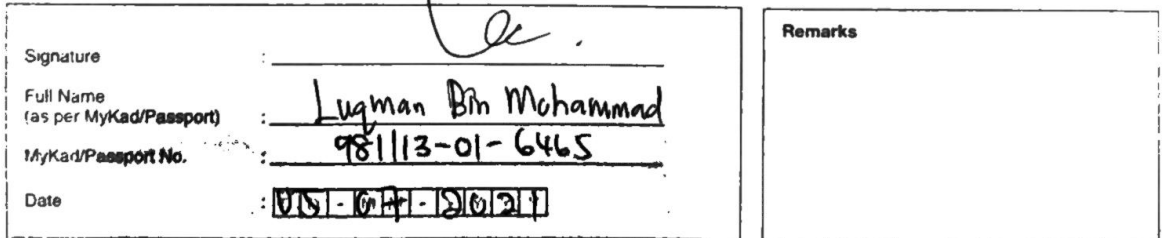 Signature :
Full Name
(as per MyKad/Passport) : Luqman Bin Mohammad
MyKad/Passport No. : 981113-01-6465
Date : 05-07-2021
Remarks